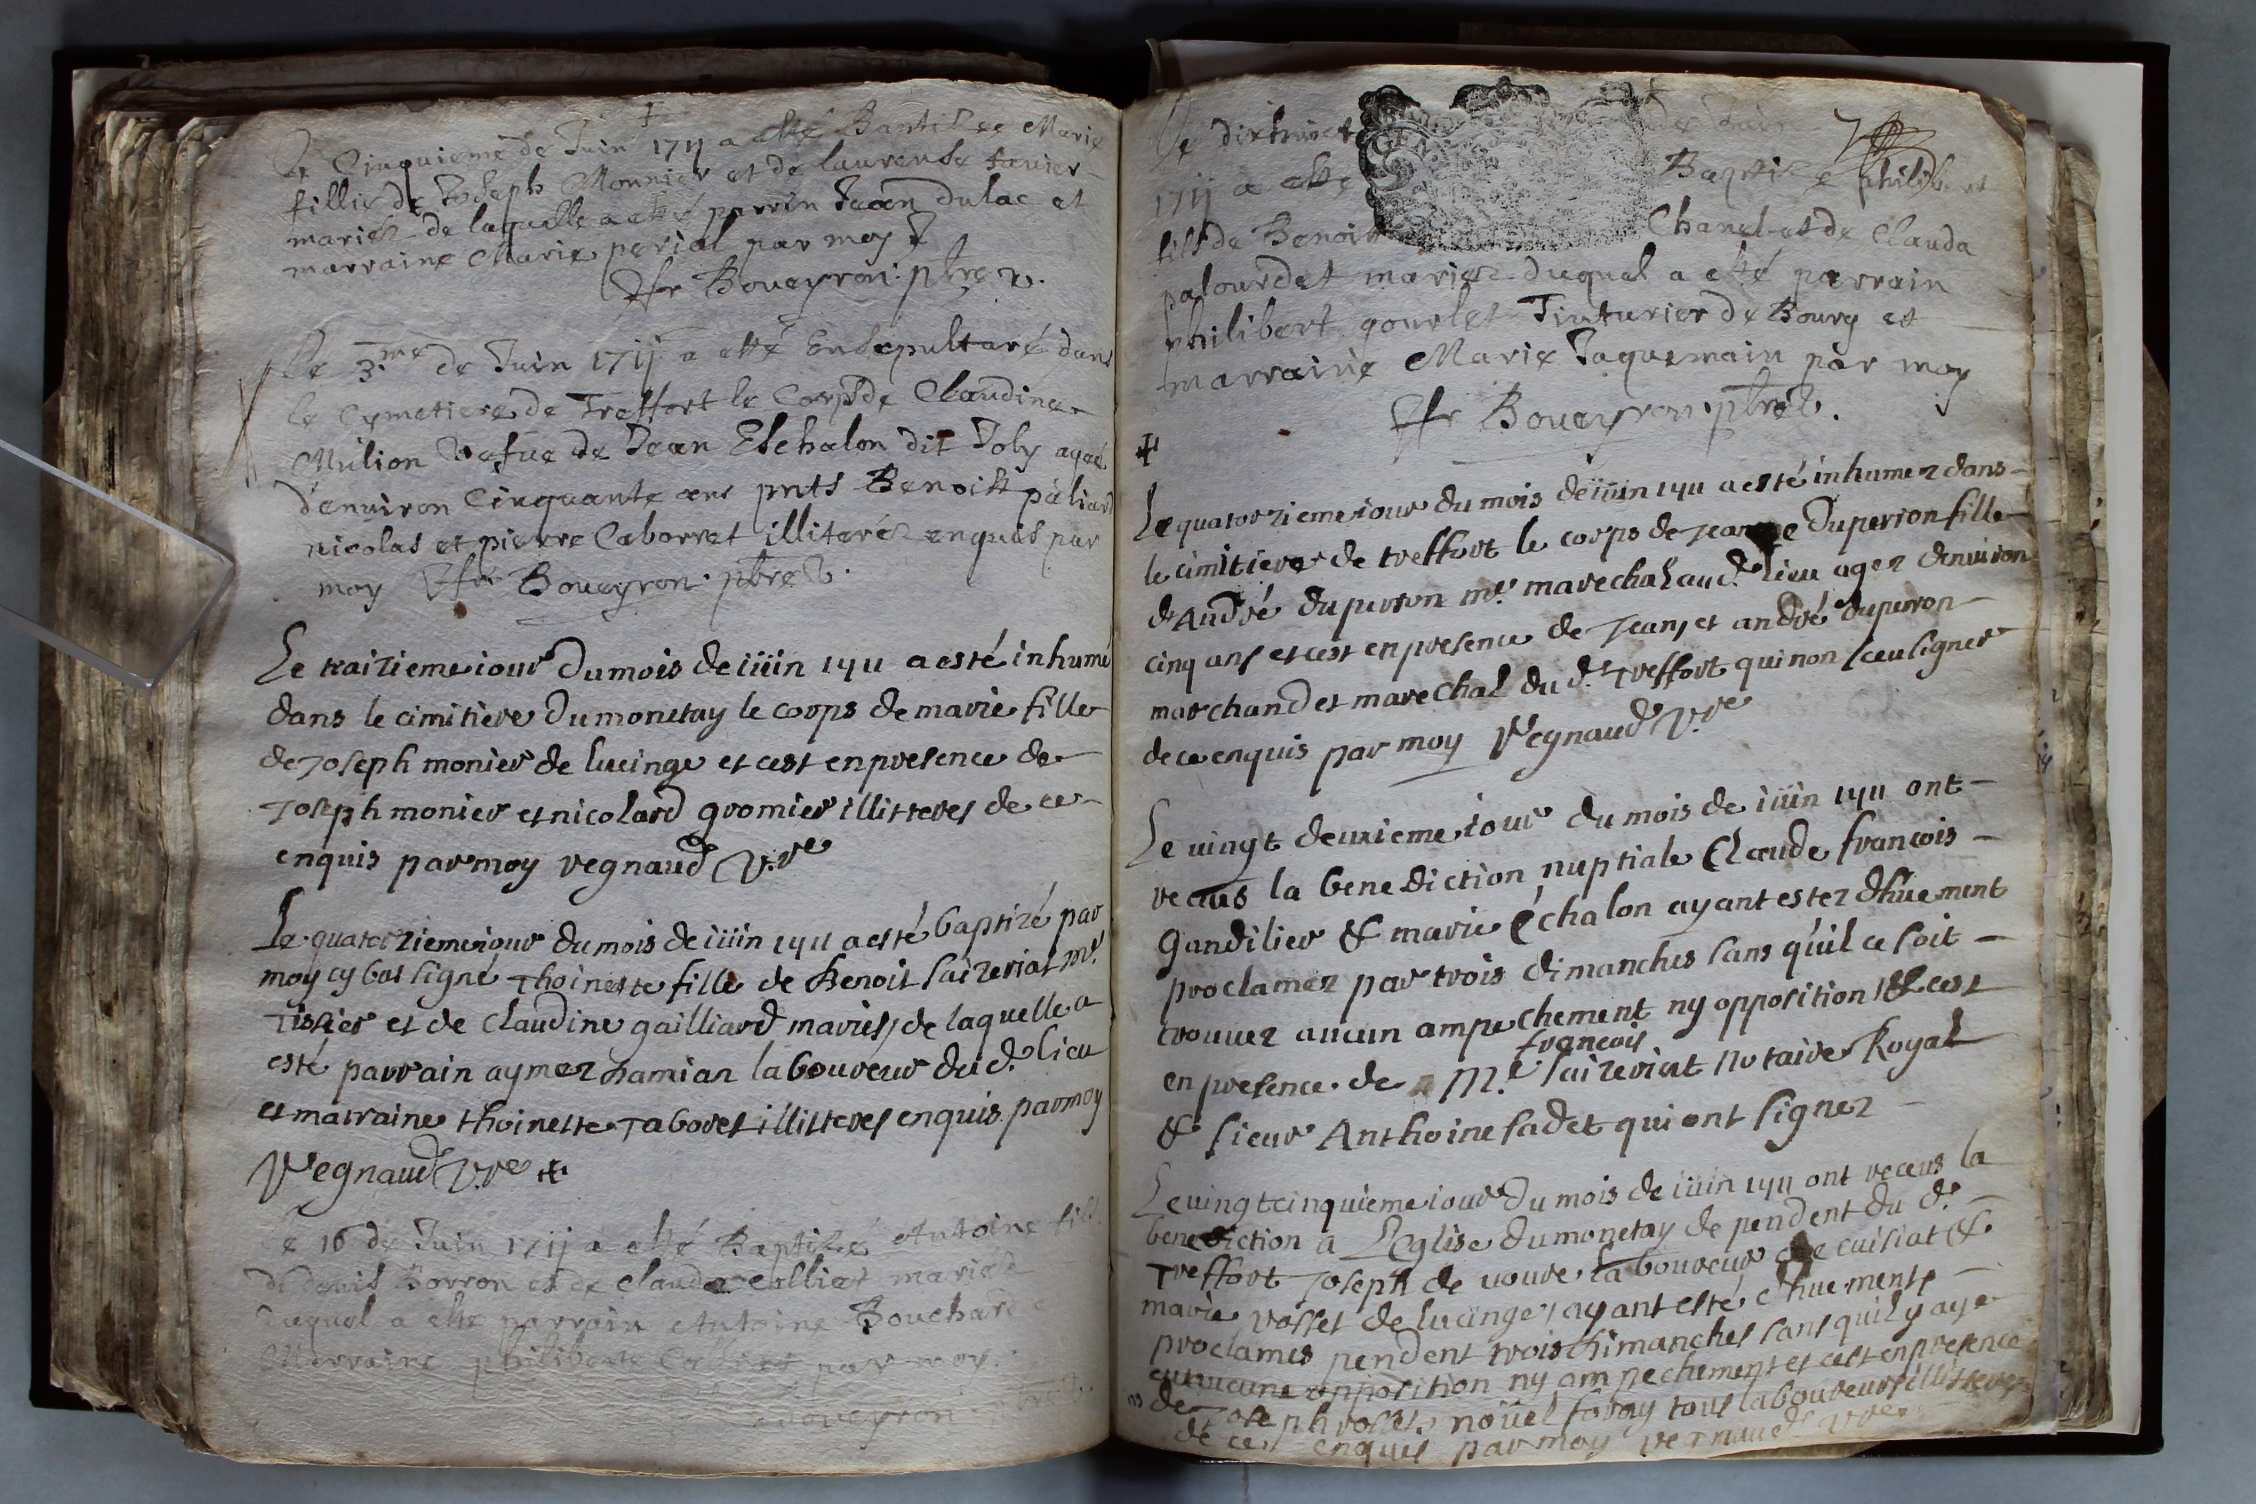 Le Cinquieme de Juin 1711 a esté Baptisee Marie
fillie de Joseph Monnier et de laurense favier
mariez de laquelle a esté parrin Jean dulac et
marraine Marie perial par moy
Bouayron ptre v.
Le 3.me de Juin 1711 a esté Ensepulturé dans
le Cymetiere de Treffort le Corps de Claudine
Mulion Vefue de Jean Eschalon dit Joly agee
d'enuiron Cinquante ans pnts Benoist paliard
nicolas et pierre Caborret illiterés enquis par
moy Boueyron ptre v.
Le traizieme iour du mois de iüin 1711 a esté inhumé
dans le cimitiere du monetay le corps de marie fille
de Joseph monier de lucinge et cest en presence de
Joseph monier et nicolard gromier illitteres de ce
enquis par moy regnaud V.re
Le quatorzieme iour du mois de iüin 1711 a esté baptizé par
moy cy bas signé Thoinette fille de Benoit saizeriat m.e
Tissier et de Claudine gailliard maries, de laquelle a
esté parrain aymez Damian laboureur du d. lieu
et marraine thoinette Taboret illitteres enquis par moy
Regnaud V.re
Le 16 de Juin 1711 a esté Baptizé Antoine fils
de denis Borron et de Clauda Colliet mariés
Duquel a esté parrain Antoine Bouchard
Marraine philiberte par moy
Boueyron
Le dixhuict de Juin
1711 a esté Baptisé philibert
fils de Benoit Chanel et de Clauda
palourdet mariez duquel a esté parrain
philibert gourlet Tinturier de Bourg et
marraine Marie Jaquemain par moy
Boueyron ptre v.
Le quatorzieme iour du mois de iüin 1711 a esté inhumez dans
le cimitiere de treffort le corps de Jeanne Duperron fille
d'André duperron m.e marechal au d. lieu agez denuiron
cinq ans et cest en presence de Jean, et andré duperron
marchand et marechal du d. Treffort qui non sceu signer
de ce enquis par moy Regnaud V.re
Le uingt deuxieme iour du mois de iüin 1711 ont
receus la benediction nuptiale Claude francois
gandilier & marie échalon ayant estez dhuement
proclamez par trois dimanches sans qu'il ce soit
trouuez aucun ampechement ny opposition & cest
francois
en presence de M.e saizeriat notaire Royal
& sieur Anthoine sadet qui ont signez
Le uingtcinquieme iour du mois de iüin 1711 ont receus la
benediction a L'Eglise du monetay dependent du d.
Treffort Joseph de uoure laboureur de cuisiat &
marie rosset de lucinge, ayant esté dhuements
proclames pendent trois dimanches sans quil y aye
eu aucune opposition ny ampechement et cest en presence
de Joseph rosset noüel foray tous laboureurs illitteres
de ce enquis par moy regnaud V.re